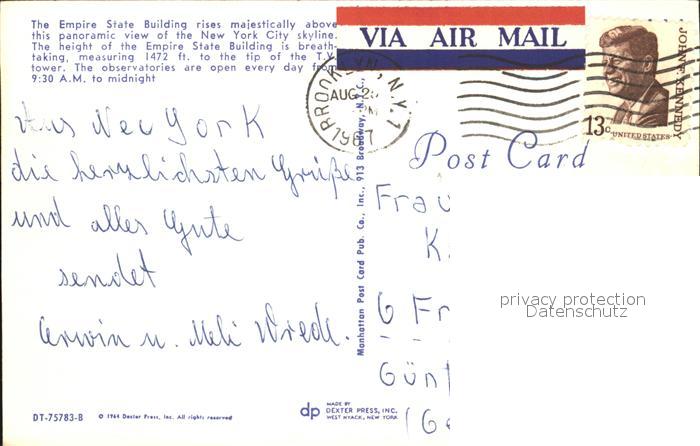 The Empire State Building rises majestically above
this panoramic view of the New York City skyline.
The height of the Empire State Building is breath-
taking, measuring 1472 ft. to the tip of the T.V.
tower. The observatories are open every day from
9:30 A.M. to midnight
VIA AIR MAIL
BROOKLYN, N.Y.
AUG 2
PM
1967
JOHN F. KENNEDY
13c
UNITED STATES
Post Card
Aus New York
die herzlichsten Grüße
und alles Gute
sendet
Erwin u. Meli
Manhattan Post Card Pub. Co., Inc., 913 Broadway, N.Y.C.
Frau
K
6 Fr
Gün
privacy protection
Datenschutz
DT-75783-B
© 1964 Dexter Press, Inc. All rights reserved
dp
MADE BY
DEXTER PRESS, INC.
WEST NYACK, NEW YORK